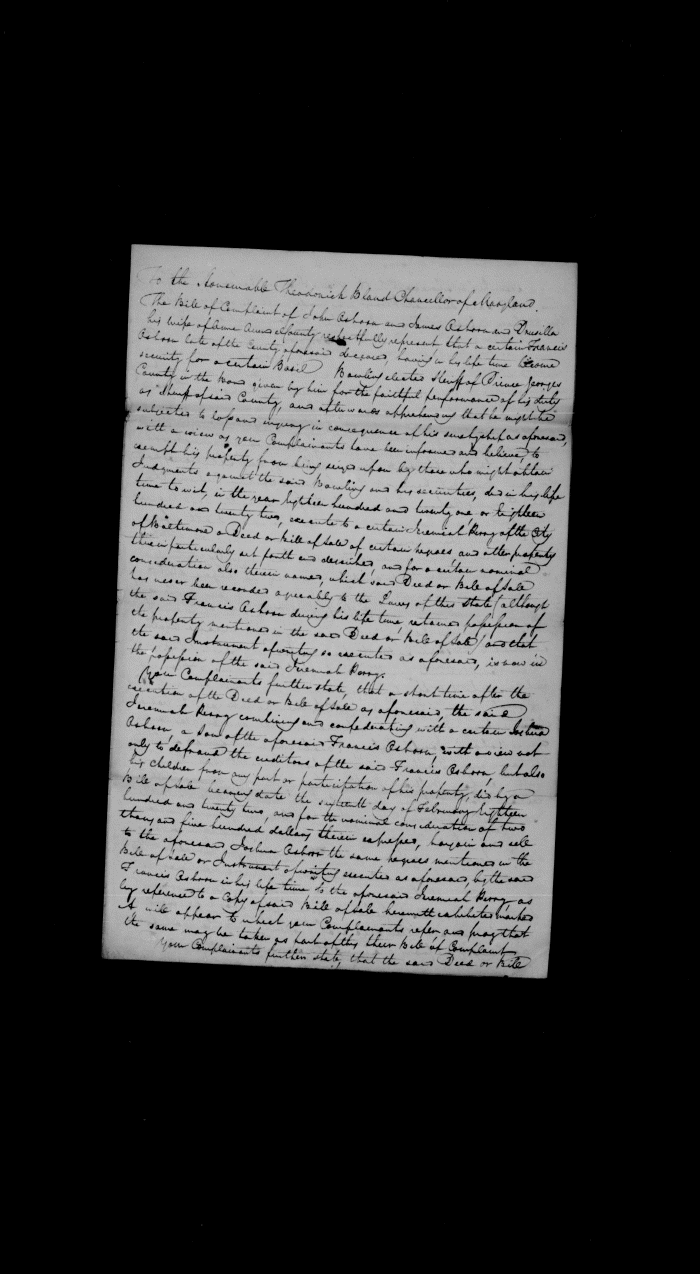 To the Honourable Theodorick Bland Chancellor of Maryland.
The Bill of Complaint of John Osborn and James Osborn and Drusilla
his wife of Anne Arundel County respectfully represent that a certain Francis
Osborn late of the County aforesaid deceased, having in his life time become
security for a certain Basil Bowling elected Sheriff of Prince Georges
County in the bond given by him for the faithful performance of his duty
as Sheriff of said County, and afterwards apprehending that he might be
subjected to loss and injury in consequence of his suretyship as aforesaid,
with a view as your Complainants have been informed and believe, to
exempt his property from being seized upon by those who might obtain
Judgments against the said Bowling and his securities, did in his life
time to wit, in the year Eighteen hundred and twenty one, or Eighteen
hundred and twenty two, execute to a certain Jeremiah Perry of the City
of Baltimore a Deed or Bill of Sale of certain negroes and other property
therein particularly set forth and described, and for a certain nominal
consideration also therein named, which said Deed or Bill of Sale
has never been recorded agreeably to the Laws of this State (although
the said Francis Osborn during his life time retained possession of
the property mentioned in the said Deed or Bill of Sale) and that
the said Instrument of writing so executed as aforesaid, is now in
the possession of the said Jeremiah Perry.
Your Complainants further state, that a short time after the
execution of the Deed or Bill of Sale as aforesaid, the said
Jeremiah Perry combining and confederating with a certain Joshua
Osborn, a Son of the aforesaid Francis Osborn, with a view not
only to defraud the creditors of the said Francis Osborn but also
his children from any part or participation of his property, did by a
Bill of Sale bearing date the sixteenth day of February Eighteen
hundred and twenty two, and for the nominal consideration of two
thousand five hundred dollars therein expressed, bargain and sell
to the aforesaid Joshua Osborn the same negroes mentioned in the
Bill of Sale or Instrument of writing executed as aforesaid by the said
Francis Osborn in his life time to the aforesaid Jeremiah Perry, as
by reference to a Copy of said Bill of Sale herewith exhibited marked
A will appear to which your Complainants refer and pray that
the same may be taken as part of this their Bill of Complaint
Your Complainants further state, that the said Deed or Bill